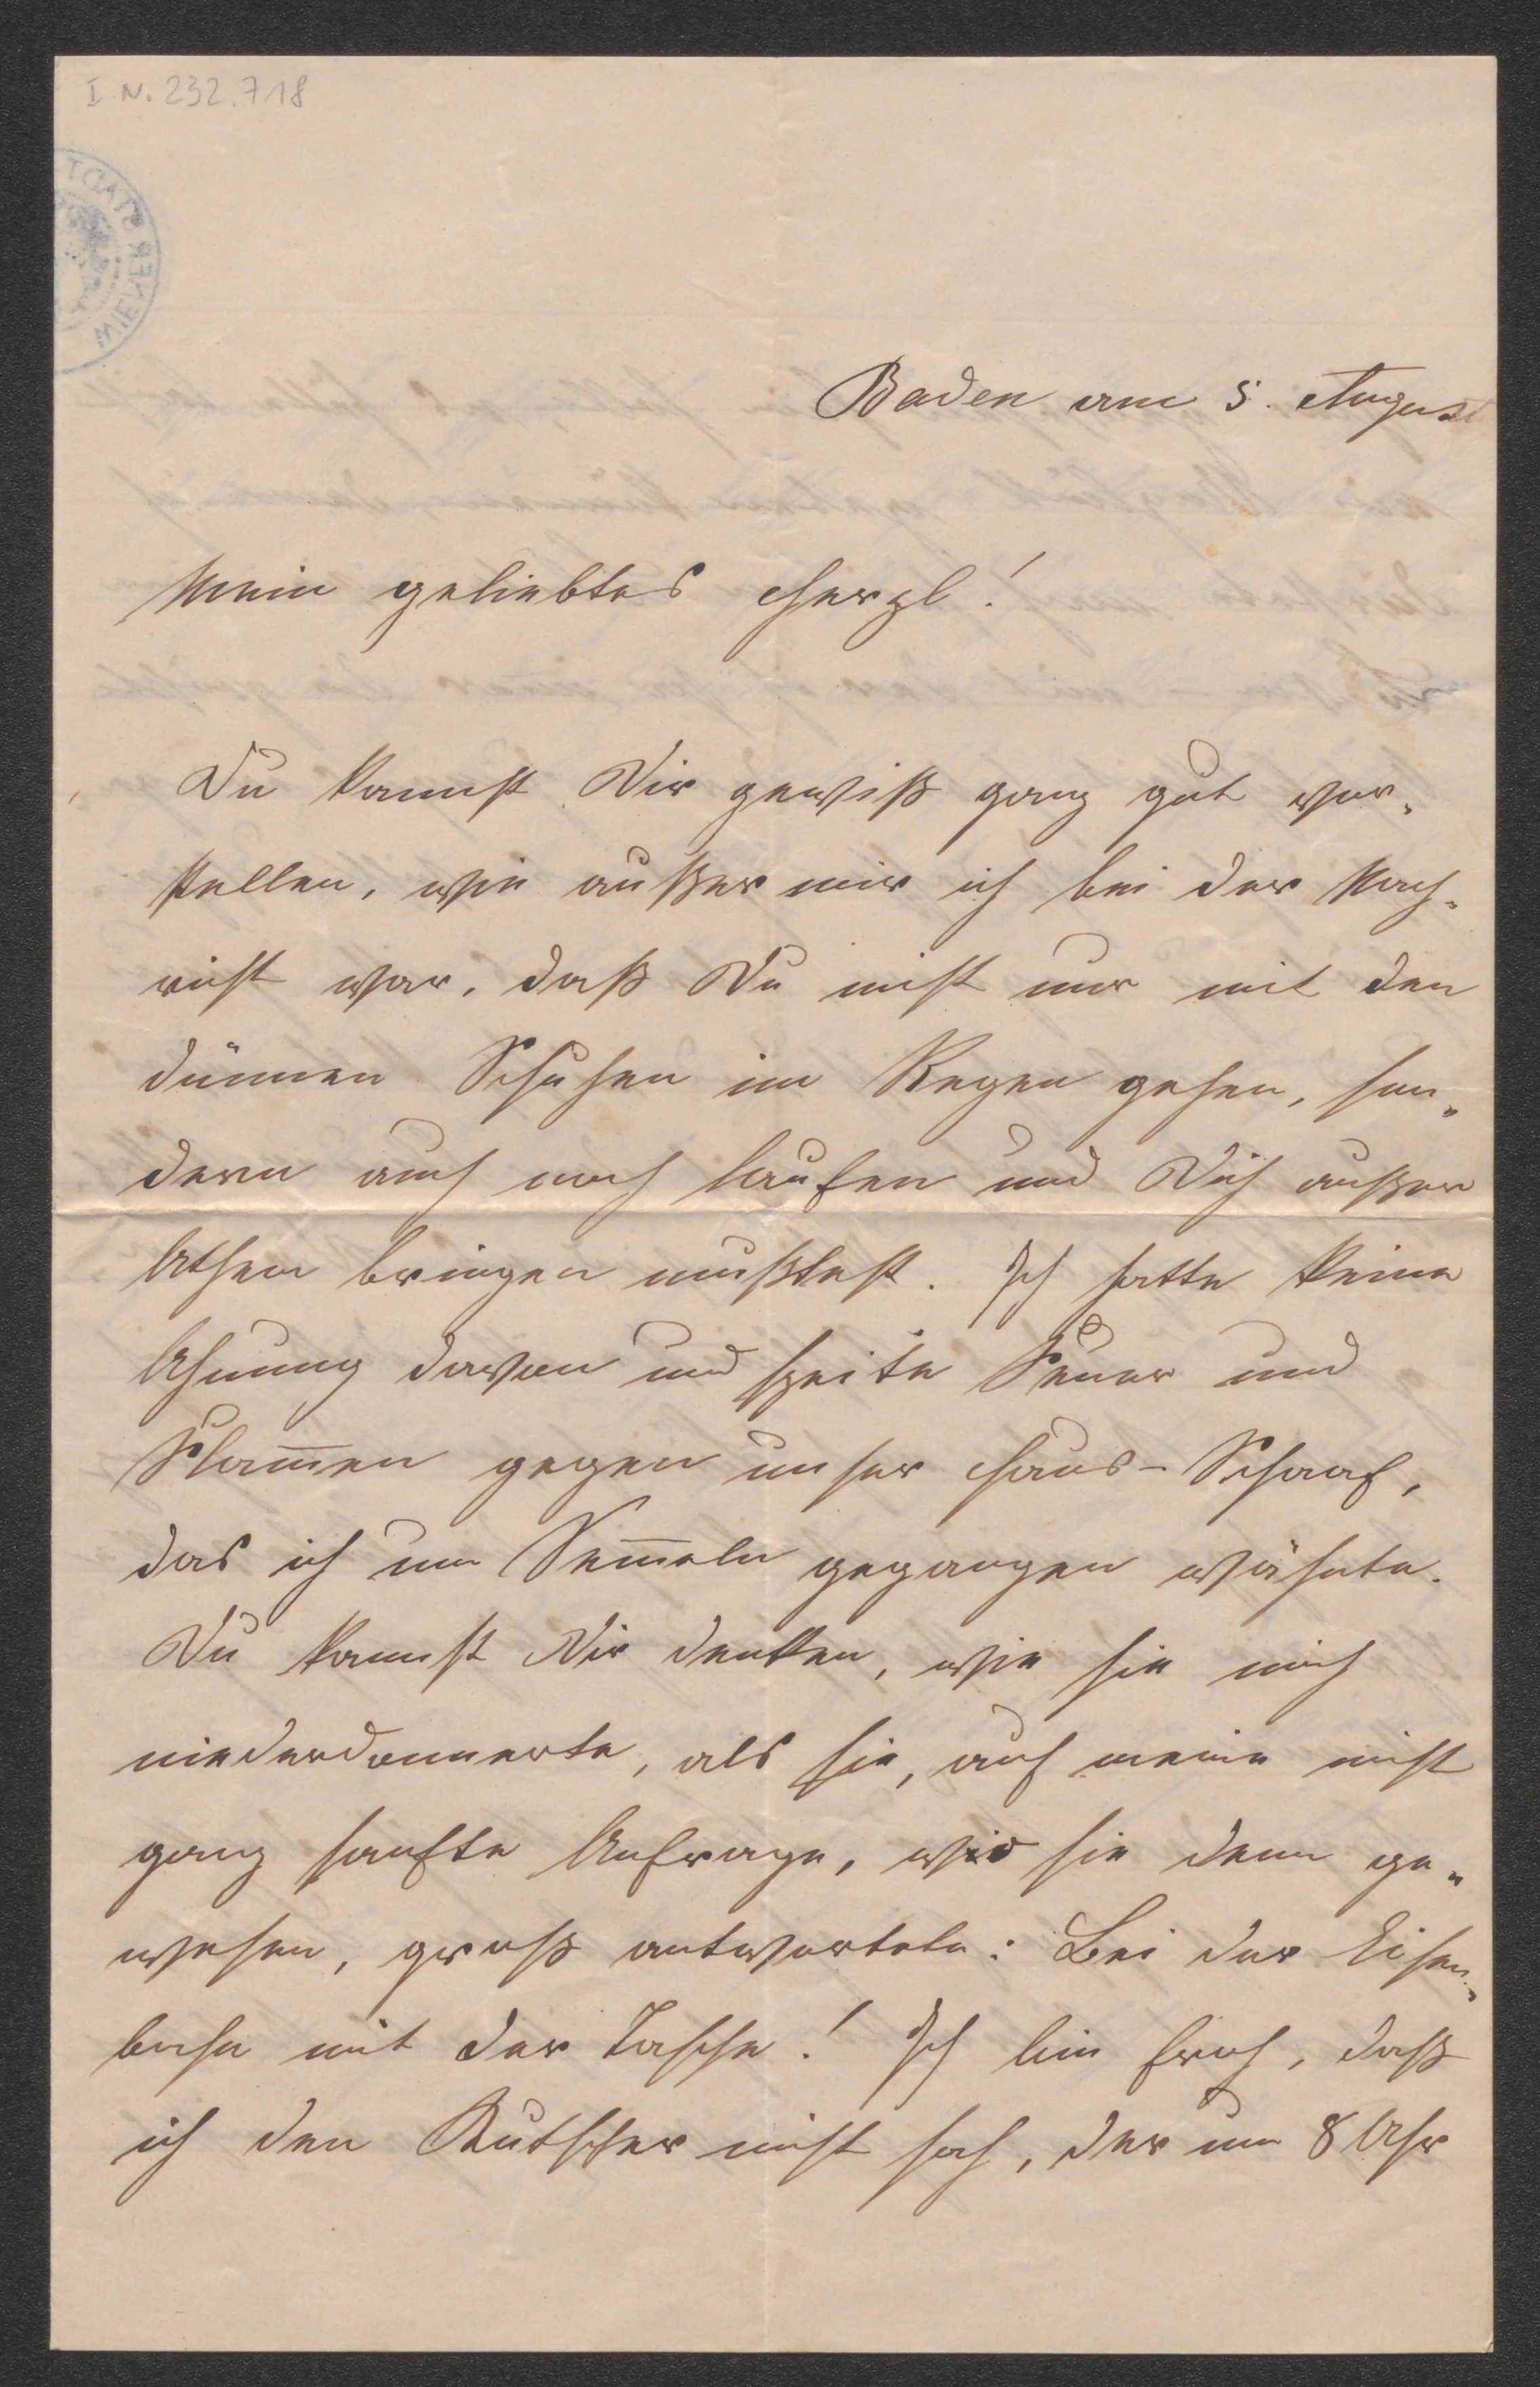 I N. 232.718
WIENER STADT
Baden am 5. August
Mein geliebtes Herzl!
Du kannst Dir gewiß ganz gut vor-
stellen, wie außer mir ich bei der Nach-
richt war, daß Du nicht nur mit den
dünnen Schuhen im Regen gehen, son-
dern auch noch laufen und Dich außer
Athem bringen mußtest. Ich hatte keine
Ahnung davon und speite Feuer und
Flam̅en gegen unser Haus-Schaaf,
das ich um Sem̅eln gegangen wähnte.
Du kannst Dir denken, wie sie mich
niederdonnerte, als sie, auf meine nicht
ganz sanfte Anfrage, wo sie denn ge-
wesen, groß antwortete: Bei der Eisen-
bahn mit der Tasche! Ich bin froh, daß
ich den Kutscher nicht sah, der um 8 Uhr